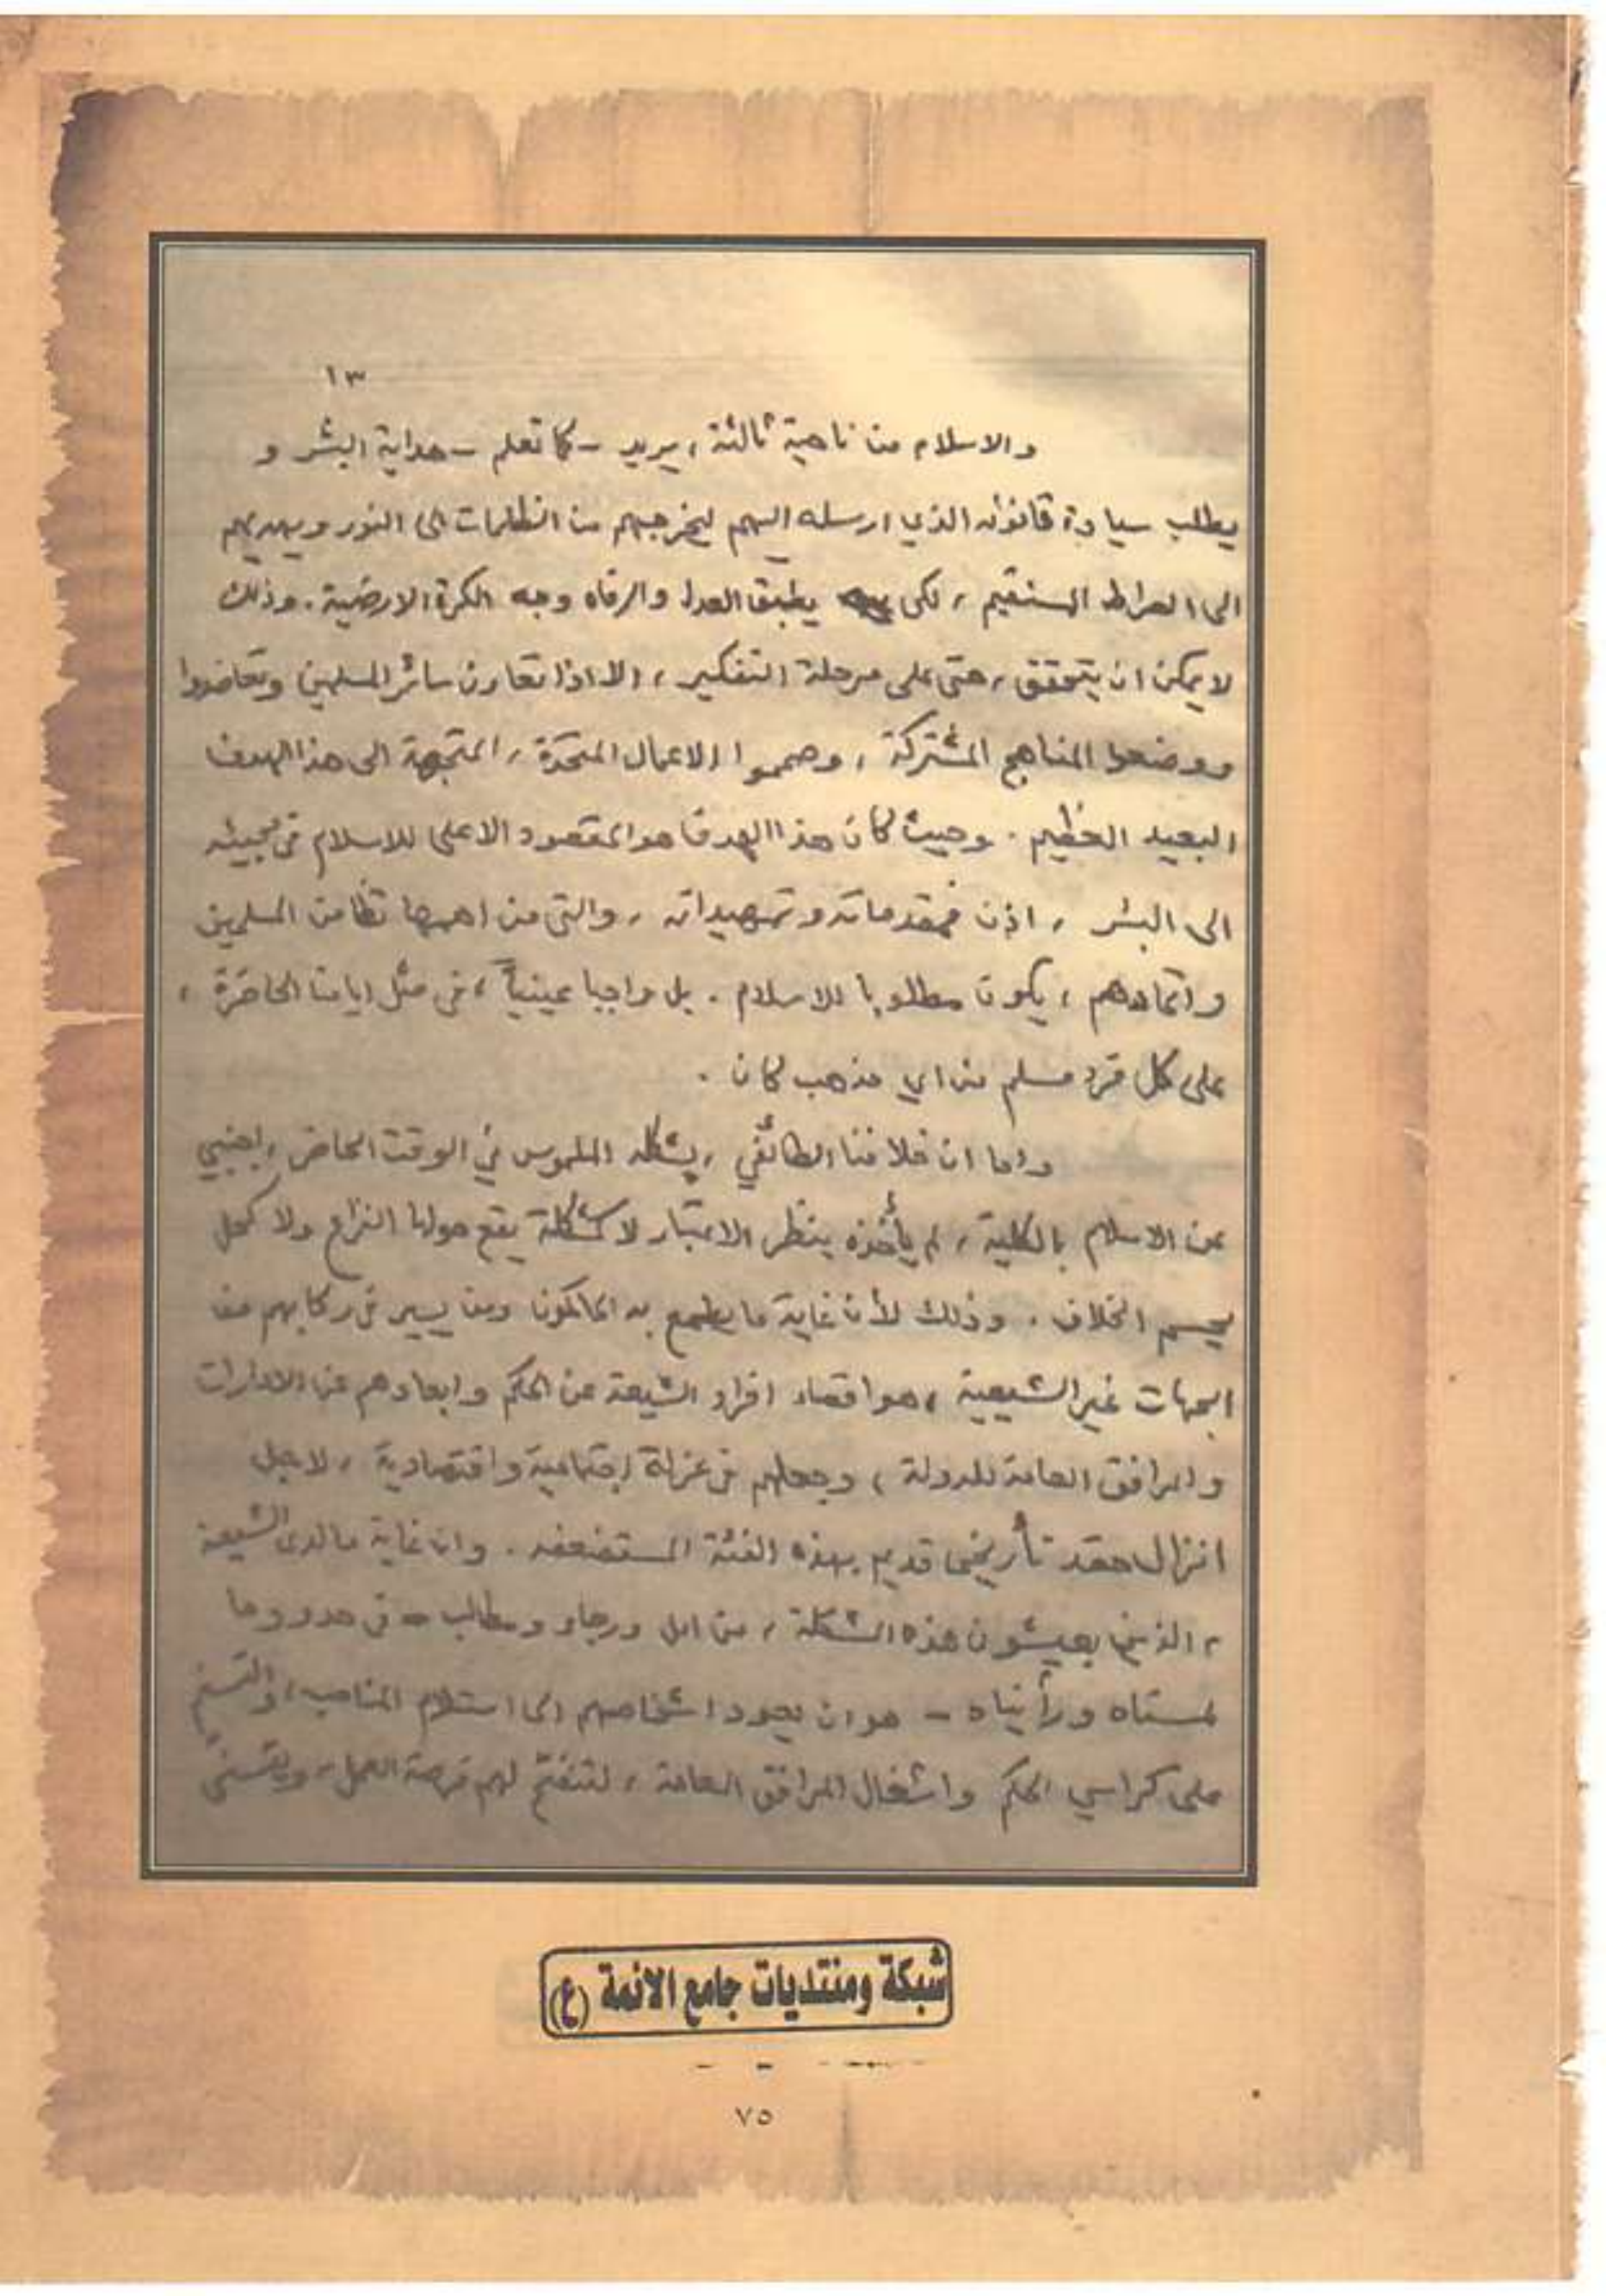 ١٣
والاسلام من ناحية ثالثة ، يريد - كما تعلم - هداية البشر و
يطلب سيادة قانونه الذي ارسله اليهم ليخرجهم من الظلمات الى النور ويهديهم
الى الصراط المستقيم ، لكي يطبق العدل والرفاه وجه الكرة الارضية . وذلك
لا يمكن ان يتحقق ، حتى على مرحلة التفكير ، الا اذا تعاون سائر المسلمين وتعاضدوا
ووضعوا المناهج المشتركة ، وصمموا الاعمال المتحدة ، المتجهة الى هذا الهدف
البعيد العظيم . وحيث كان هذا الهدف هو المقصود الاعلى للاسلام في مجيئه
الى البشر ، اذن فمقدماته وتمهيداته ، والتي من اهمها تضامن المسلمين
واتحادهم ، يكون مطلوبا للاسلام . بل واجبا عينياً ، في مثل ايامنا الحاضرة ،
على كل فرد مسلم من اي مذهب كان .
واما ان خلافنا الطائفي ، بشكله الملموس في الوقت الحاضر ، اجنبي
عن الاسلام بالكلية ، لم يأخذه بنظر الاعتبار لا كمشكلة يقع حولها النزاع ولا كحل
يحسم الخلاف . وذلك لأن غاية ما يطمع به الحاكمون ومن يسير في ركابهم من
الجهات غير الشيعية ، هو اقصاء افراد الشيعة عن الحكم وابعادهم عن الادارات
والمرافق العامة للدولة ، وجعلهم في عزلة اجتماعية واقتصادية ، لاجل
انزال حقد تأريخي قديم بهذه الفئة المستضعفه . وان غاية ما لدى الشيعة
، الذين يعيشون هذه المشكلة ، من امل ورجاء ومطالب - في حدود ما
لمسناه ورأيناه - هو ان يعود اشخاصهم الى استلام المناصب ، والتسنم
على كراسي الحكم واشغال المرافق العامة ، لتنفتح لهم فرصة العمل ، ويتسنى
شبكة ومنتديات جامع الائمة (ع)
٧٥